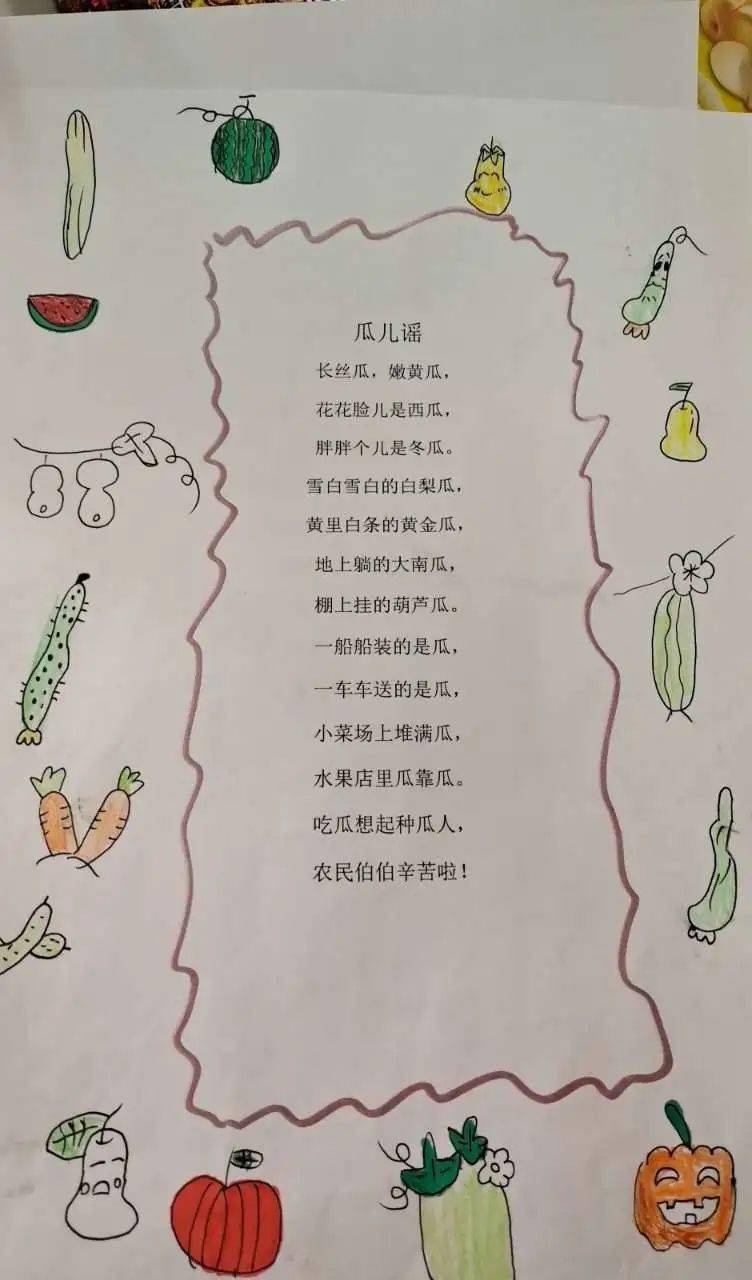 瓜儿谣
长丝瓜，嫩黄瓜，
花花脸儿是西瓜，
胖胖个儿是冬瓜。
雪白雪白的白梨瓜，
黄里白条的黄金瓜，
地上躺的大南瓜，
棚上挂的葫芦瓜。
一船船装的是瓜，
一车车送的是瓜，
小菜场上堆满瓜，
水果店里瓜靠瓜。
吃瓜想起种瓜人，
农民伯伯辛苦啦！